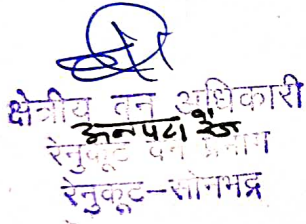 क्षेत्रीय वन अधिकारी
अनपरा रेंज
रेनुकूट वन प्रभाग
रेनुकूट-सोनभद्र